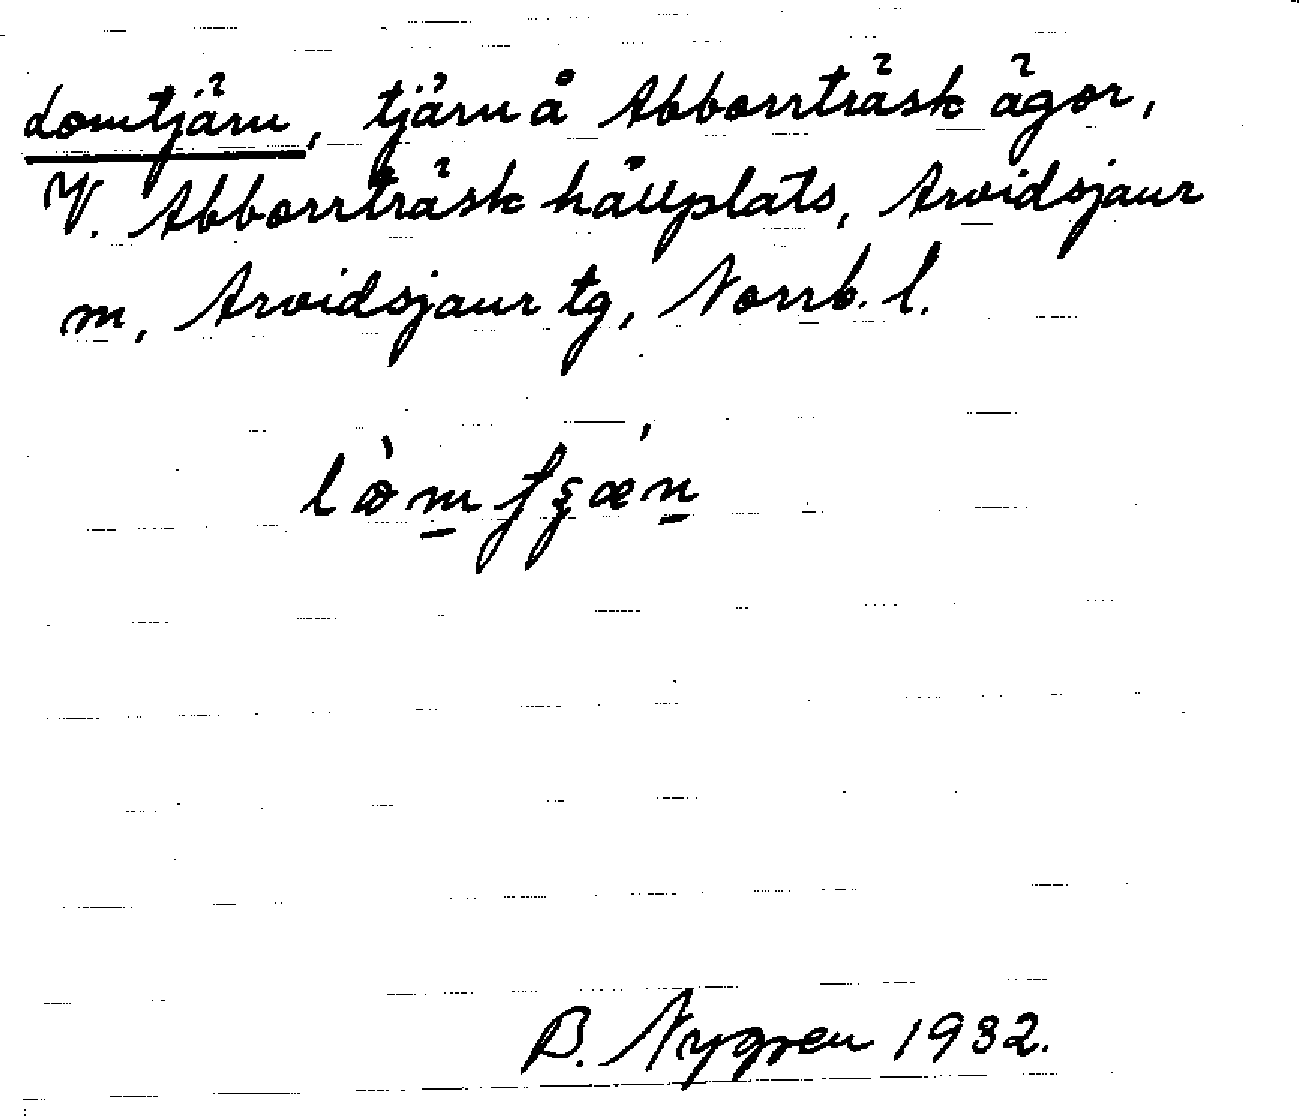 Lomtjärn, tjärn å Abborrträsk ägor,
V. Abborrträsk hållplats, Arvidsjaur
m, Arvidsjaur tg, Norrb. l.
B. Nygren 1932.